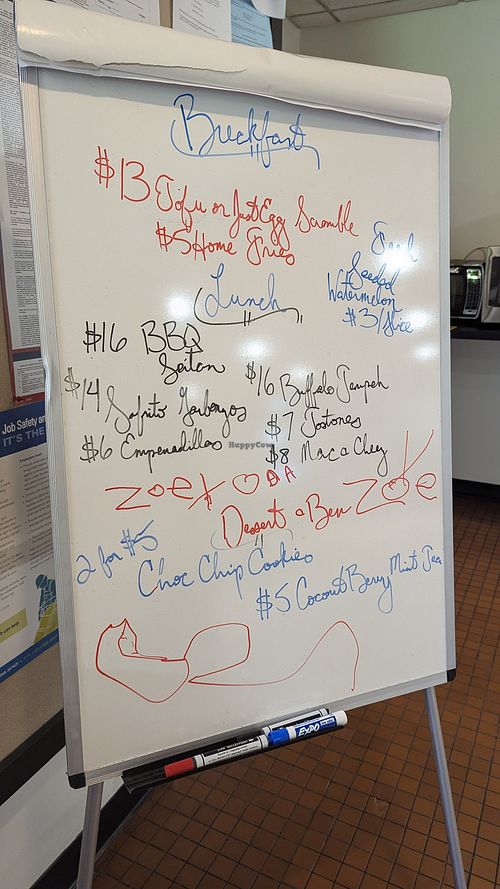 Breckfast
$13 Tofu or Just Egg Scramble
$5 Home Fries
Fresh
Seeded
Watermelon
$3/slice
Lunch
$16 BBQ
Seiten
$14 Sofrito Garbanzos
$6 Empenadillas
$16 Buffalo Tempeh
$7 Tostones
$8 Mac a Cheez
HappyCow
zoe
zoe
Dessert a Bev
2 for $5
Choc Chip Cookies
$5 Coconut Berry Mint Tea
EXPO
Job Safety an
IT'S THE